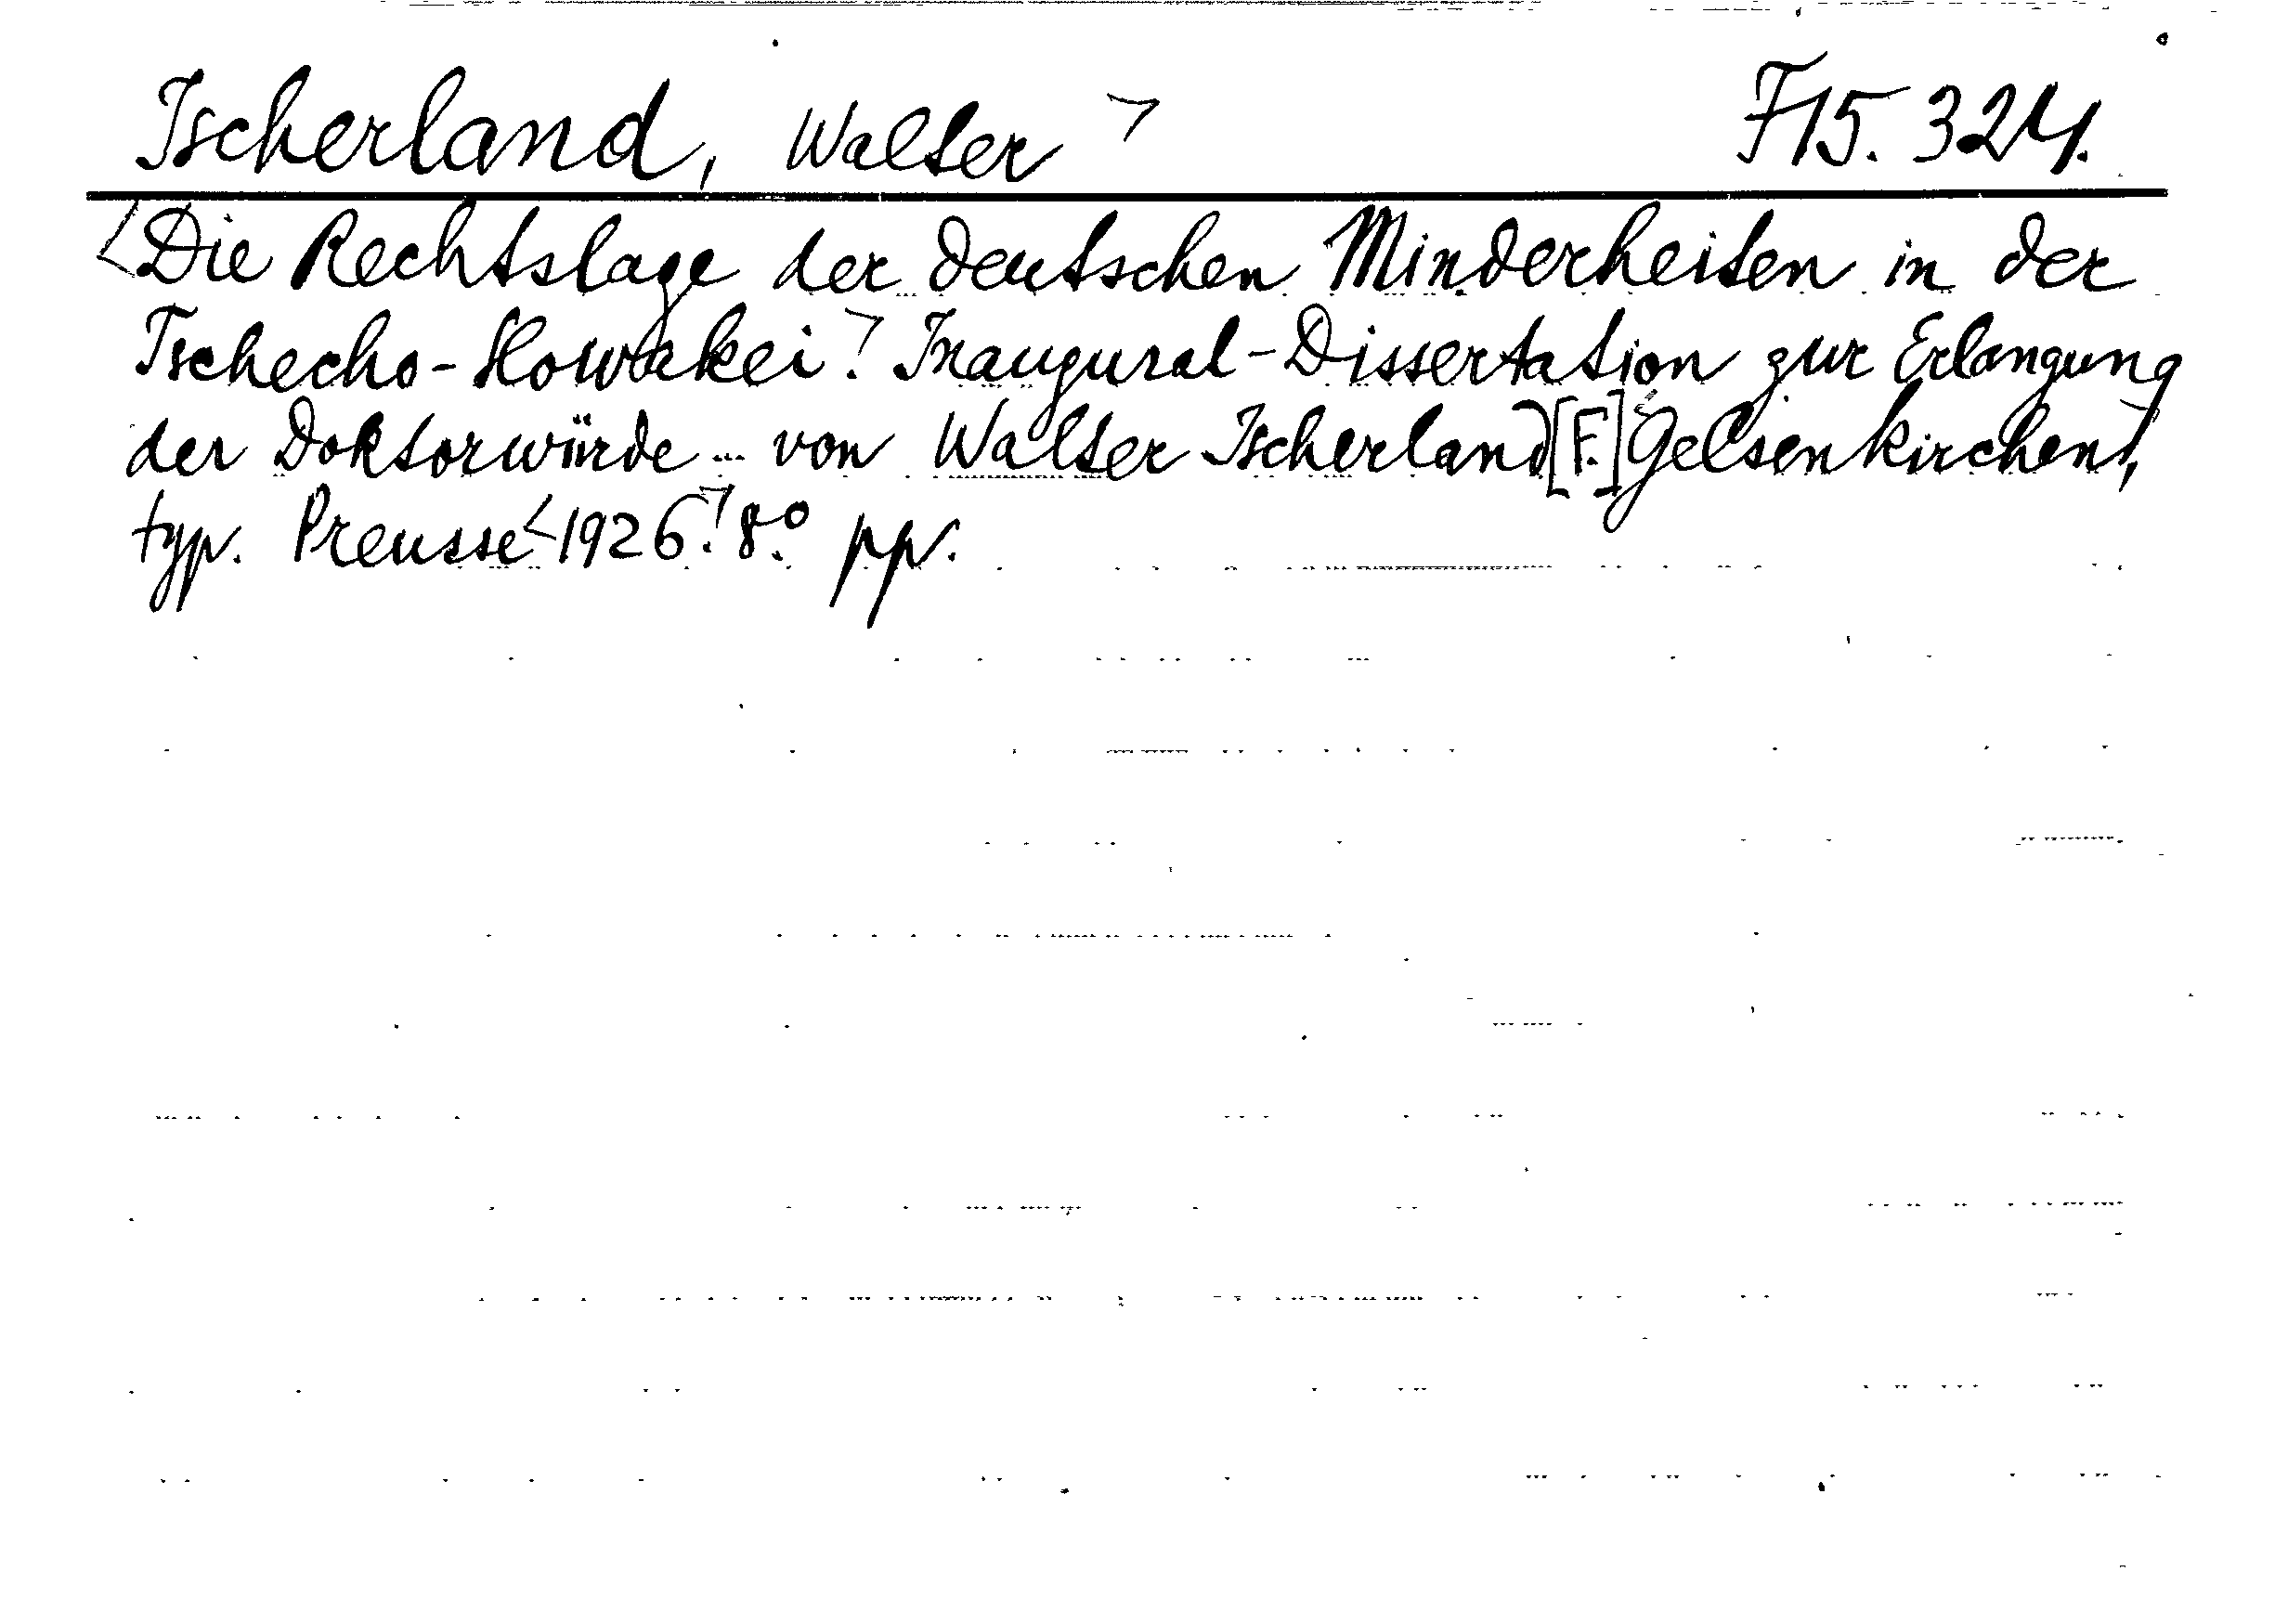 Tscherland, Walter ⌝ F15.324.
⟨Die Rechtslage der deutschen Minderheiten in der
Tschecho-slowakei.⌝ Inaugural-Dissertation zur Erlangung
der Doktorwürde ... von Walter Tscherland [F.] Gelsenkirchen⌝,
typ. Preusse ⟨1926.⌝ 8.° pp.